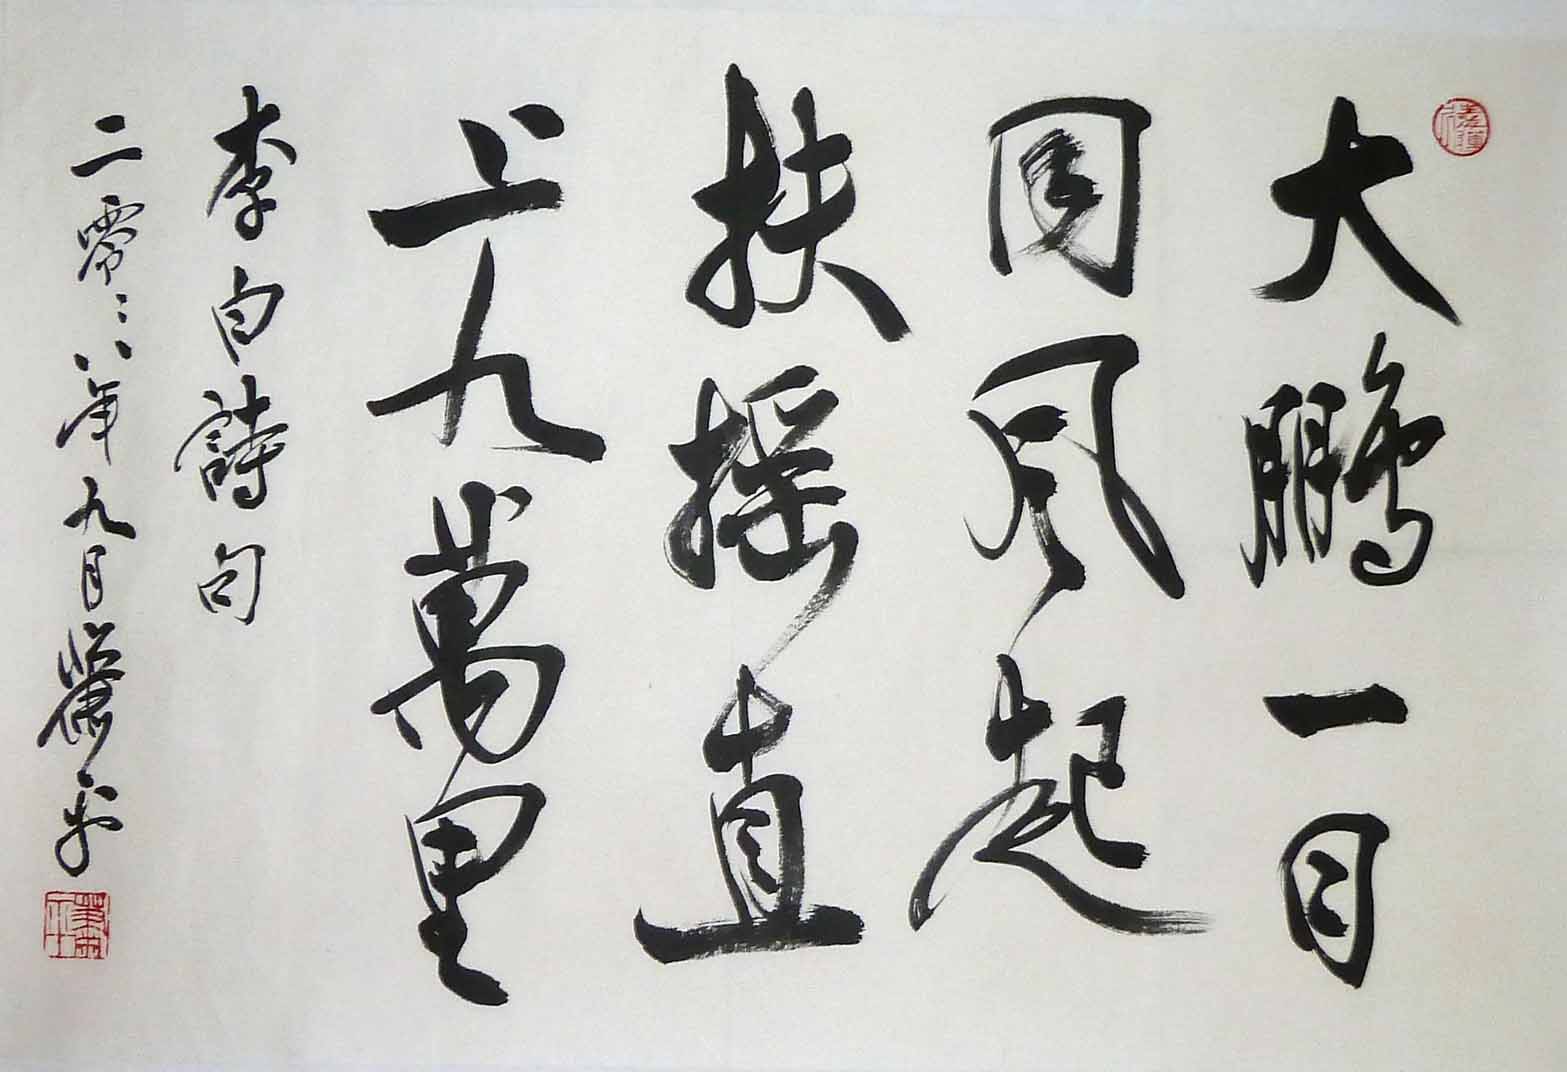 大鵬一日
同風起
扶搖直
上九萬里
李白詩句
二零零八年九月